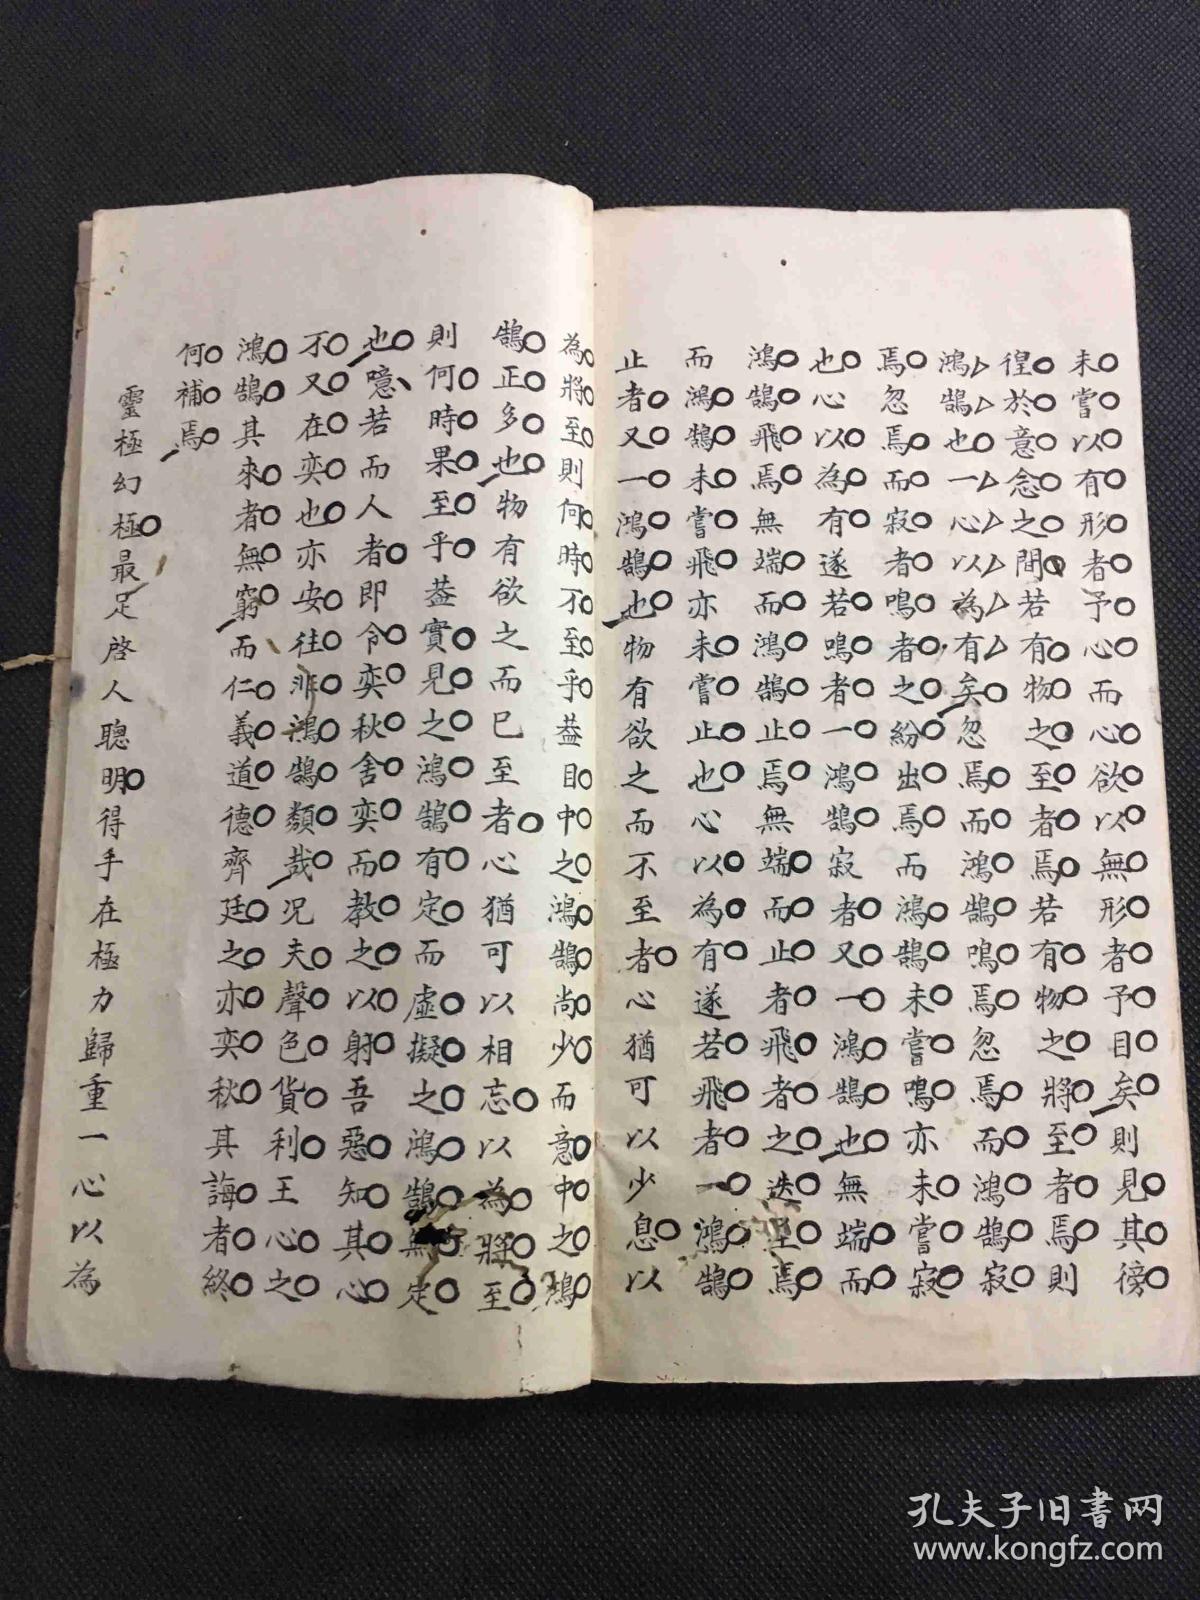 未嘗以有形者予心而心欲以無形者予目矣則見其傍
徨於意念之間若有物之至者焉若有物之將至者焉則
鴻鵠也一心以為有矣忽焉而鴻鵠鳴焉忽焉而鴻鵠寂
焉忽焉而寂者鳴者之紛出焉而鴻鵠未嘗鳴亦未嘗寂
也心以為有遂若鳴者一鴻鵠寂者又一鴻鵠也無端而
鴻鵠飛焉無端而鴻鵠止焉無端而止者飛者之迭至焉
而鴻鵠未嘗飛亦未嘗止也心以為有遂若飛者一鴻鵠
止者又一鴻鵠也物有欲之而不至者心猶可以少息以
為將至則何時不至乎蓋目中之鴻鵠尚少而意中之鴻
鵠正多也物有欲之而已至者心猶可以相忘以為將至
則何時果至乎蓋實見之鴻鵠有定而虛擬之鴻鵠無定
也噫若而人者即令奕秋舍奕而教之以射吾惡知其心
不又在奕也亦安往非鴻鵠類哉况夫聲色貨利王心之
鴻鵠其來者無窮而仁義道德齊廷之亦奕秋其誨者終
何補焉
靈極幻極最足啓人聰明得手在極力歸重一心以為
孔夫子旧书网
www.kongfz.com